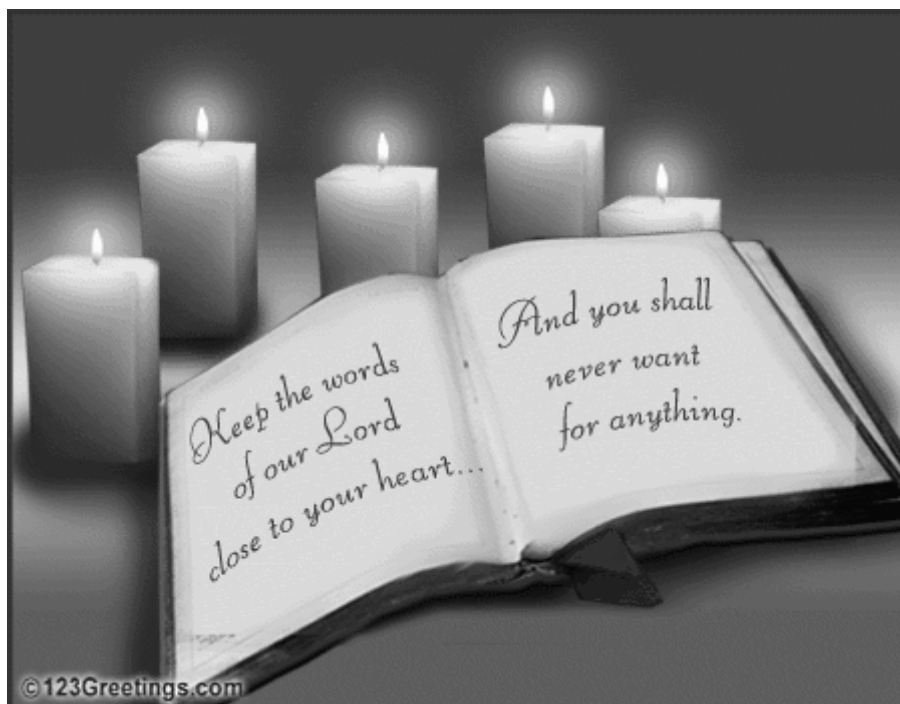 Keep the words
of our Lord
close to your heart...
And you shall
never want
for anything.
©123Greetings.com